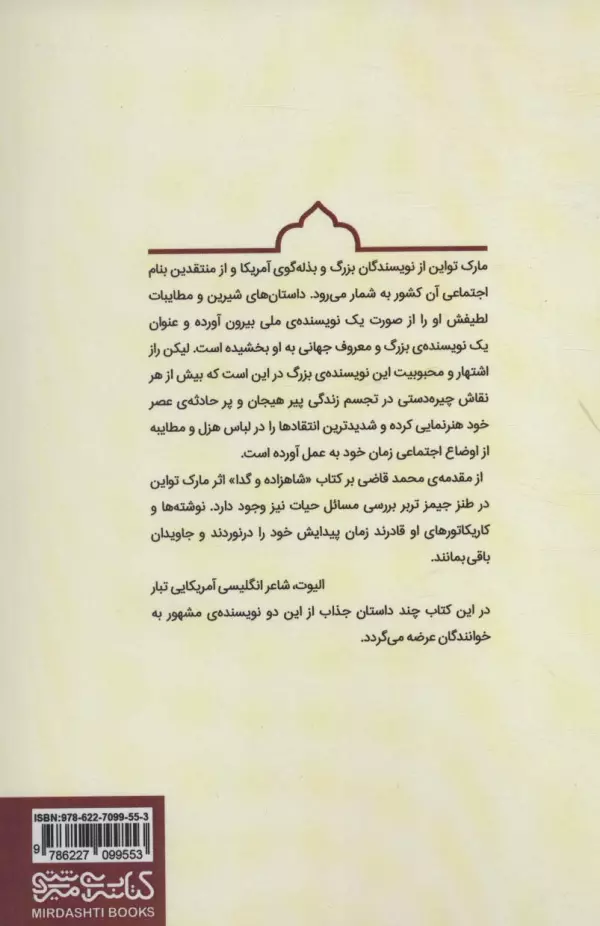 مارک تواین از نویسندگان بزرگ و بذله‌گوی آمریکا و از منتقدین بنام
اجتماعی آن کشور به شمار می‌رود. داستان‌های شیرین و مطایبات
لطیفش او را از صورت یک نویسنده‌ی ملی بیرون آورده و عنوان
یک نویسنده‌ی بزرگ و معروف جهانی به او بخشیده است. لیکن راز
اشتهار و محبوبیت این نویسنده‌ی بزرگ در این است که بیش از هر
نقاش چیره‌دستی در تجسم زندگی پیر هیجان و پر حادثه‌ی عصر
خود هنرنمایی کرده و شدیدترین انتقادها را در لباس هزل و مطایبه
از اوضاع اجتماعی زمان خود به عمل آورده است.
از مقدمه‌ی محمد قاضی بر کتاب «شاهزاده و گدا» اثر مارک تواین
در طنز جیمز تربر بررسی مسائل حیات نیز وجود دارد. نوشته‌ها و
کاریکاتورهای او قادرند زمان پیدایش خود را درنوردند و جاویدان
باقی‌بمانند.
الیوت، شاعر انگلیسی آمریکایی تبار
در این کتاب چند داستان جذاب از این دو نویسنده‌ی مشهور به
خوانندگان عرضه می‌گردد.
ISBN:978-622-7099-55-3
9 786227 099553
کتابسرای میردشتی
MIRDASHTI BOOKS